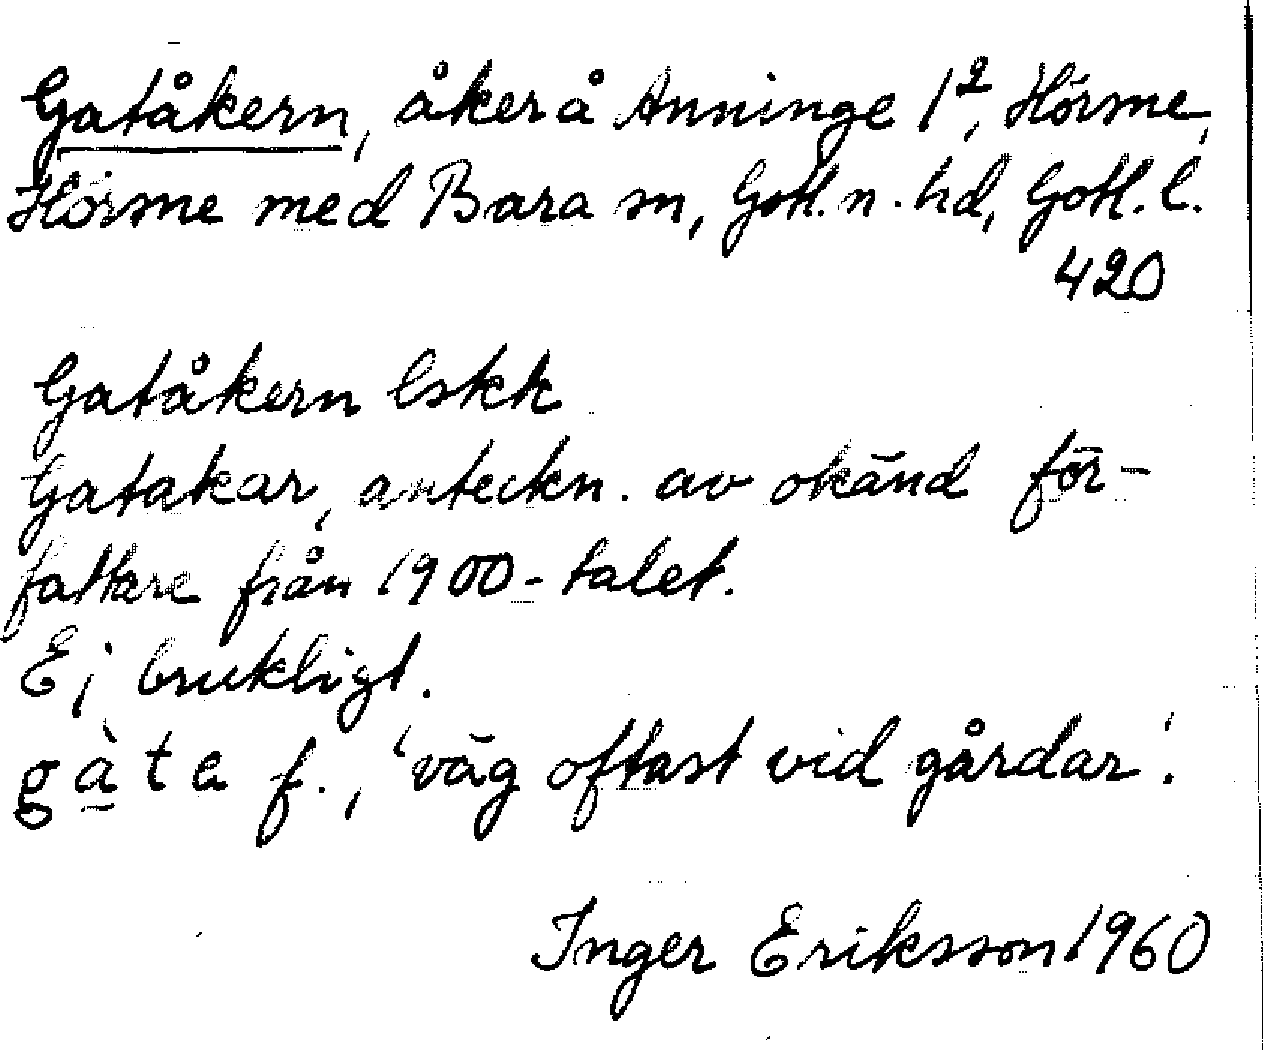 Gatåkern, åker å Anninge 1², Hörsne,
Hörsne med Bara sn, Gotl. n. hd, Gotl. l.
420
Gatåkern lskk
Gatakar, anteckn. av okänd för-
fattare från 1900-talet.
Ej brukligt.
gàta f., 'väg oftast vid gårdar'.
Inger Eriksson 1960